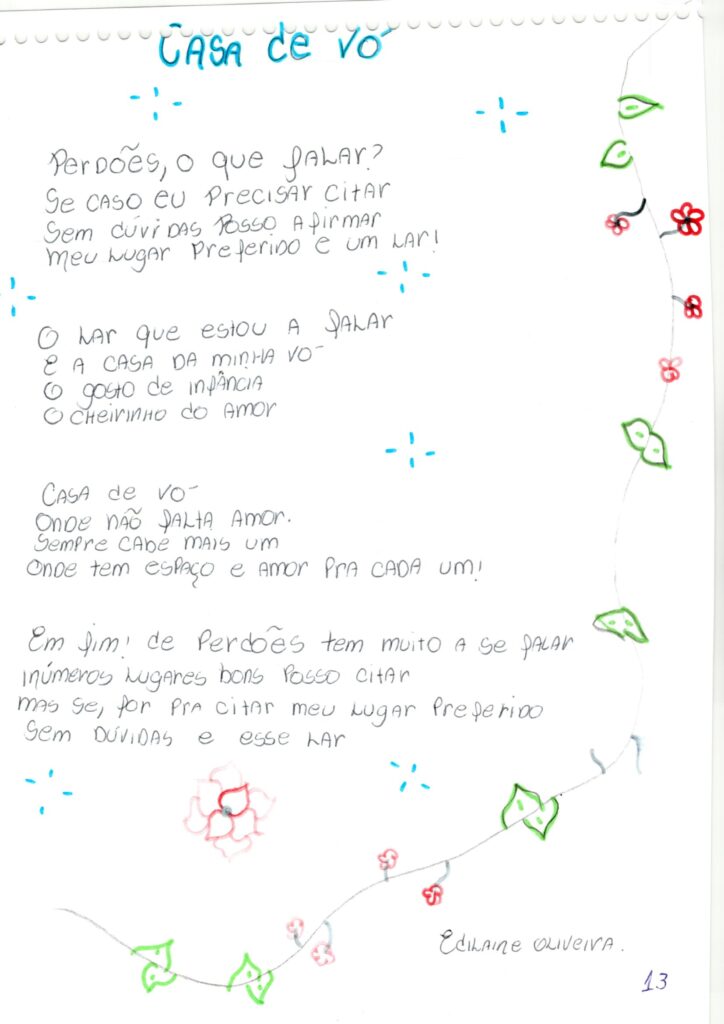 CASA de VÓ
Perdões, o que falar?
Se caso eu precisar citar
Sem dúvidas posso afirmar
meu lugar preferido e um lar!
O lar que estou a falar
E a casa da minha vó
O gosto de infância
O cheirinho do amor
Casa de vó
Onde não falta amor.
Sempre cabe mais um
Onde tem espaço e amor pra cada um!
Em fim! de Perdões tem muito a se falar
inúmeros lugares bons posso citar
mas se, for pra citar meu lugar preferido
Sem dúvidas e esse lar
Edilaine Oliveira.
13